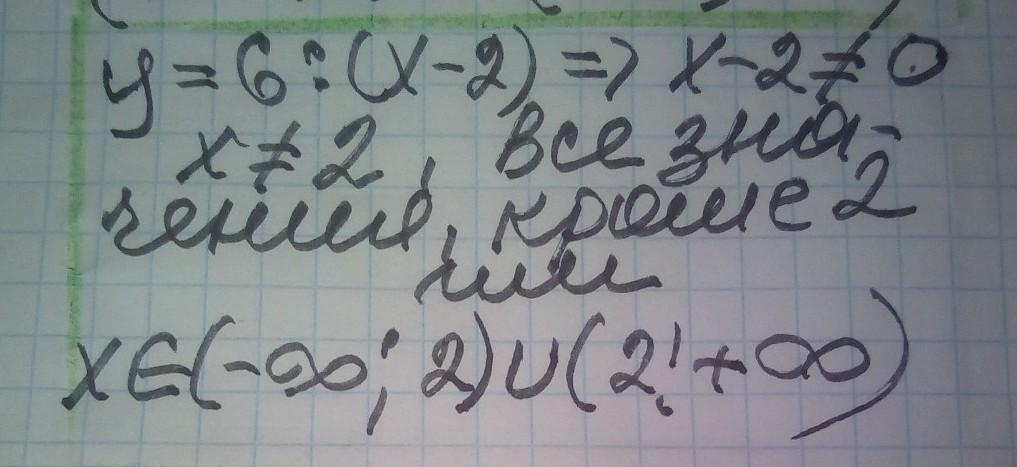 y = 6 : (x - 2) => x - 2 ≠ 0
x ≠ 2, все зна-
чения, кроме 2
или
x ∈ (-∞; 2) ∪ (2; +∞)